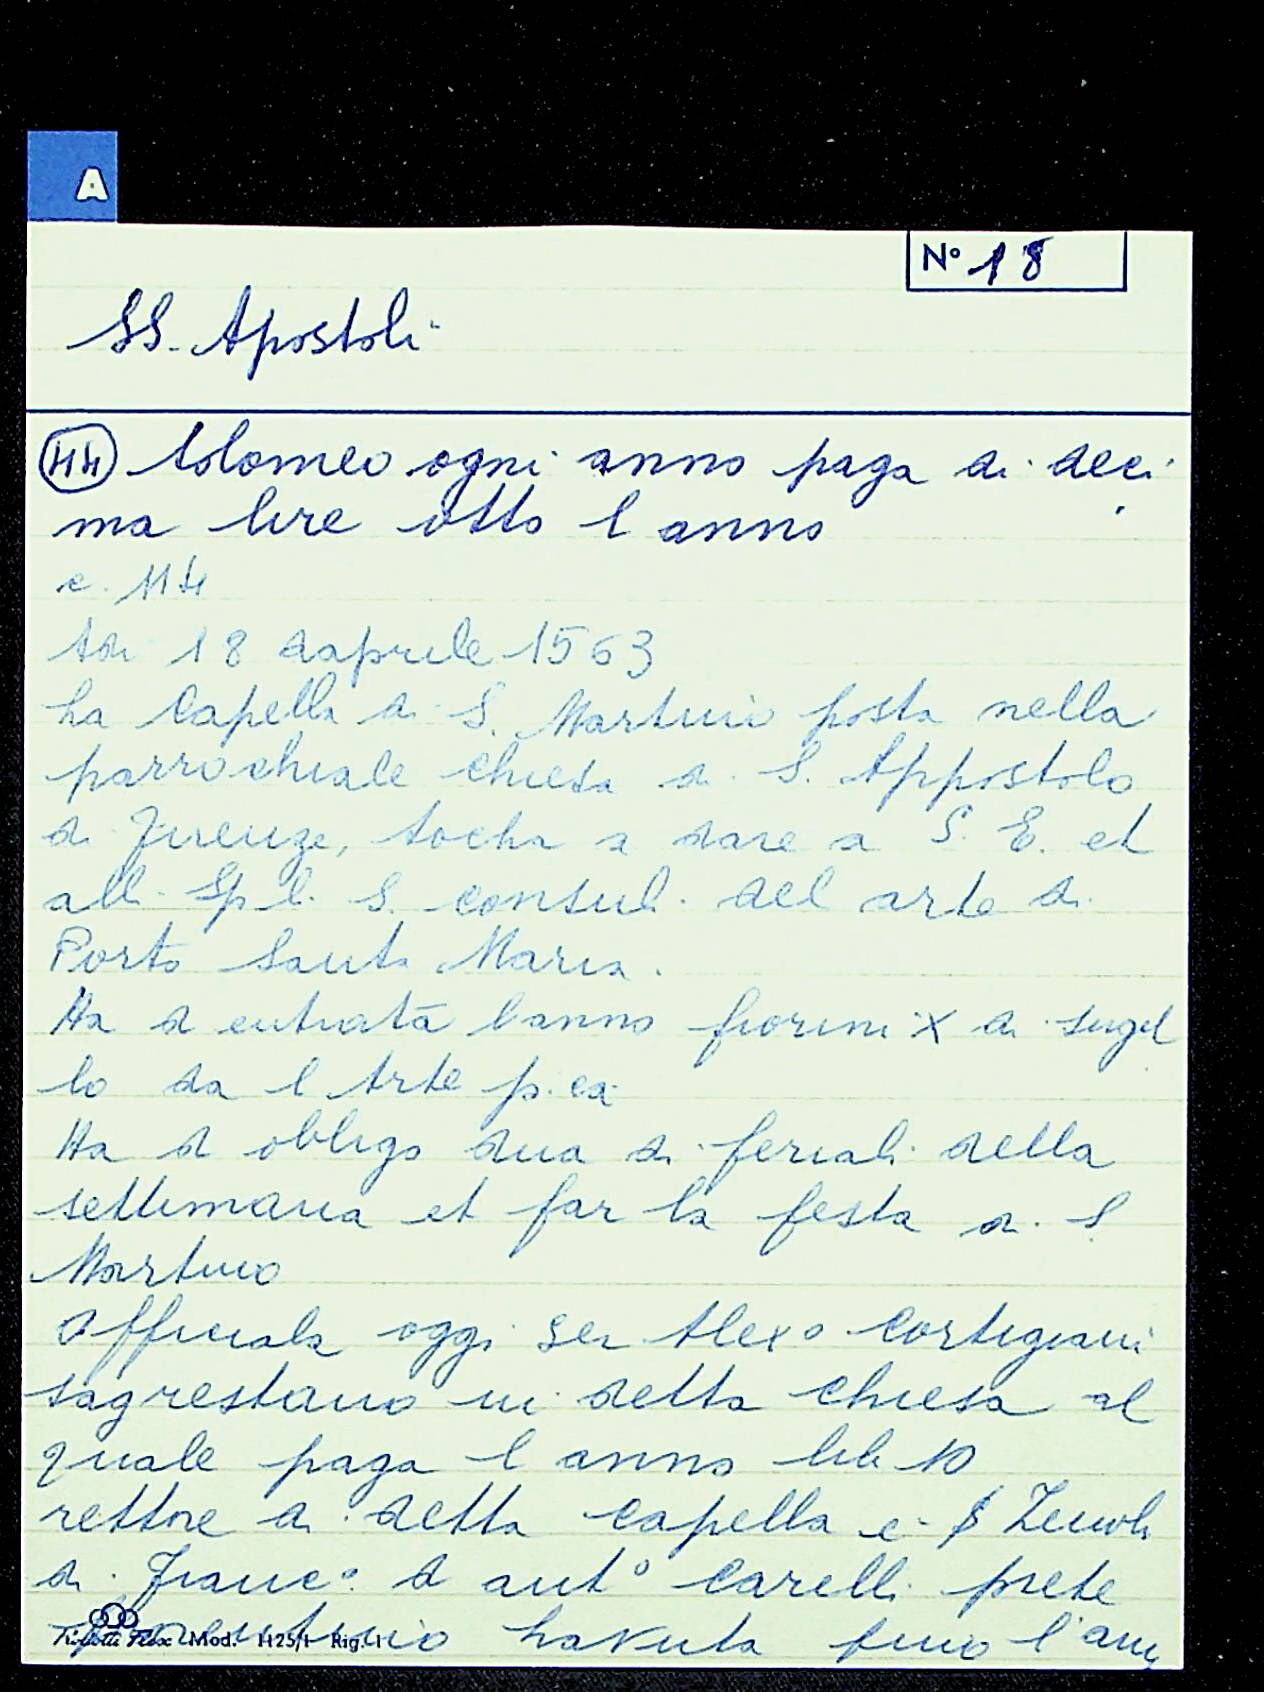 A
N° 18
SS. Apostoli
44 tolomeo ogni anno paga di deci
ma lire otto l anno
c. 114
Adi 18 daprile 1563
La Capella di S. Martino posta nella
parrochiale chiesa di S. Appostolo
di Firenze, tocha a dare a S. E. et
alli Sp.li S. consuli del arte di
Porto Santa Maria.
Ha d entrata lanno fiorini X di sugel
lo da l Arte p.ta
Ha d obbligo dua dì feriali della
settimana et far la festa di S.
Martino
Afficiala oggi ser Alexo Cortigiani
sagrestano in detta chiesa al
quale paga l anno lib 10
rettore di detta capella e S Zenobi
di Franc° d ant° Carelli prete
fiorentino havuta fino l'ann
Mod. 1125/1 Rig. 1